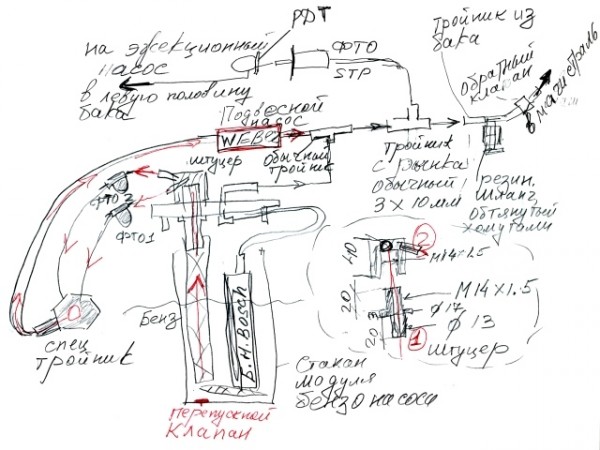 РДТ
на эжекционный
насос
ФТО
STP
в левую половину
бака
тройник из
бака
обратный
клапан
в магистраль
Подвесной
насос
WEBER
штуцер
обычный
тройник
тройник
с рынка
обычный
3 х 10мм
резин.
шланг,
обтянутый
хомутами
ФТО 2
ФТО1
спец
тройник
Бенз
Б.Н. Bosch
Стакан
модуля
бензонасоса
Перепускной
клапан
2
М14х1.5
40
20
20
3
М14х1.5
Ф 17
Ф 13
1
штуцер